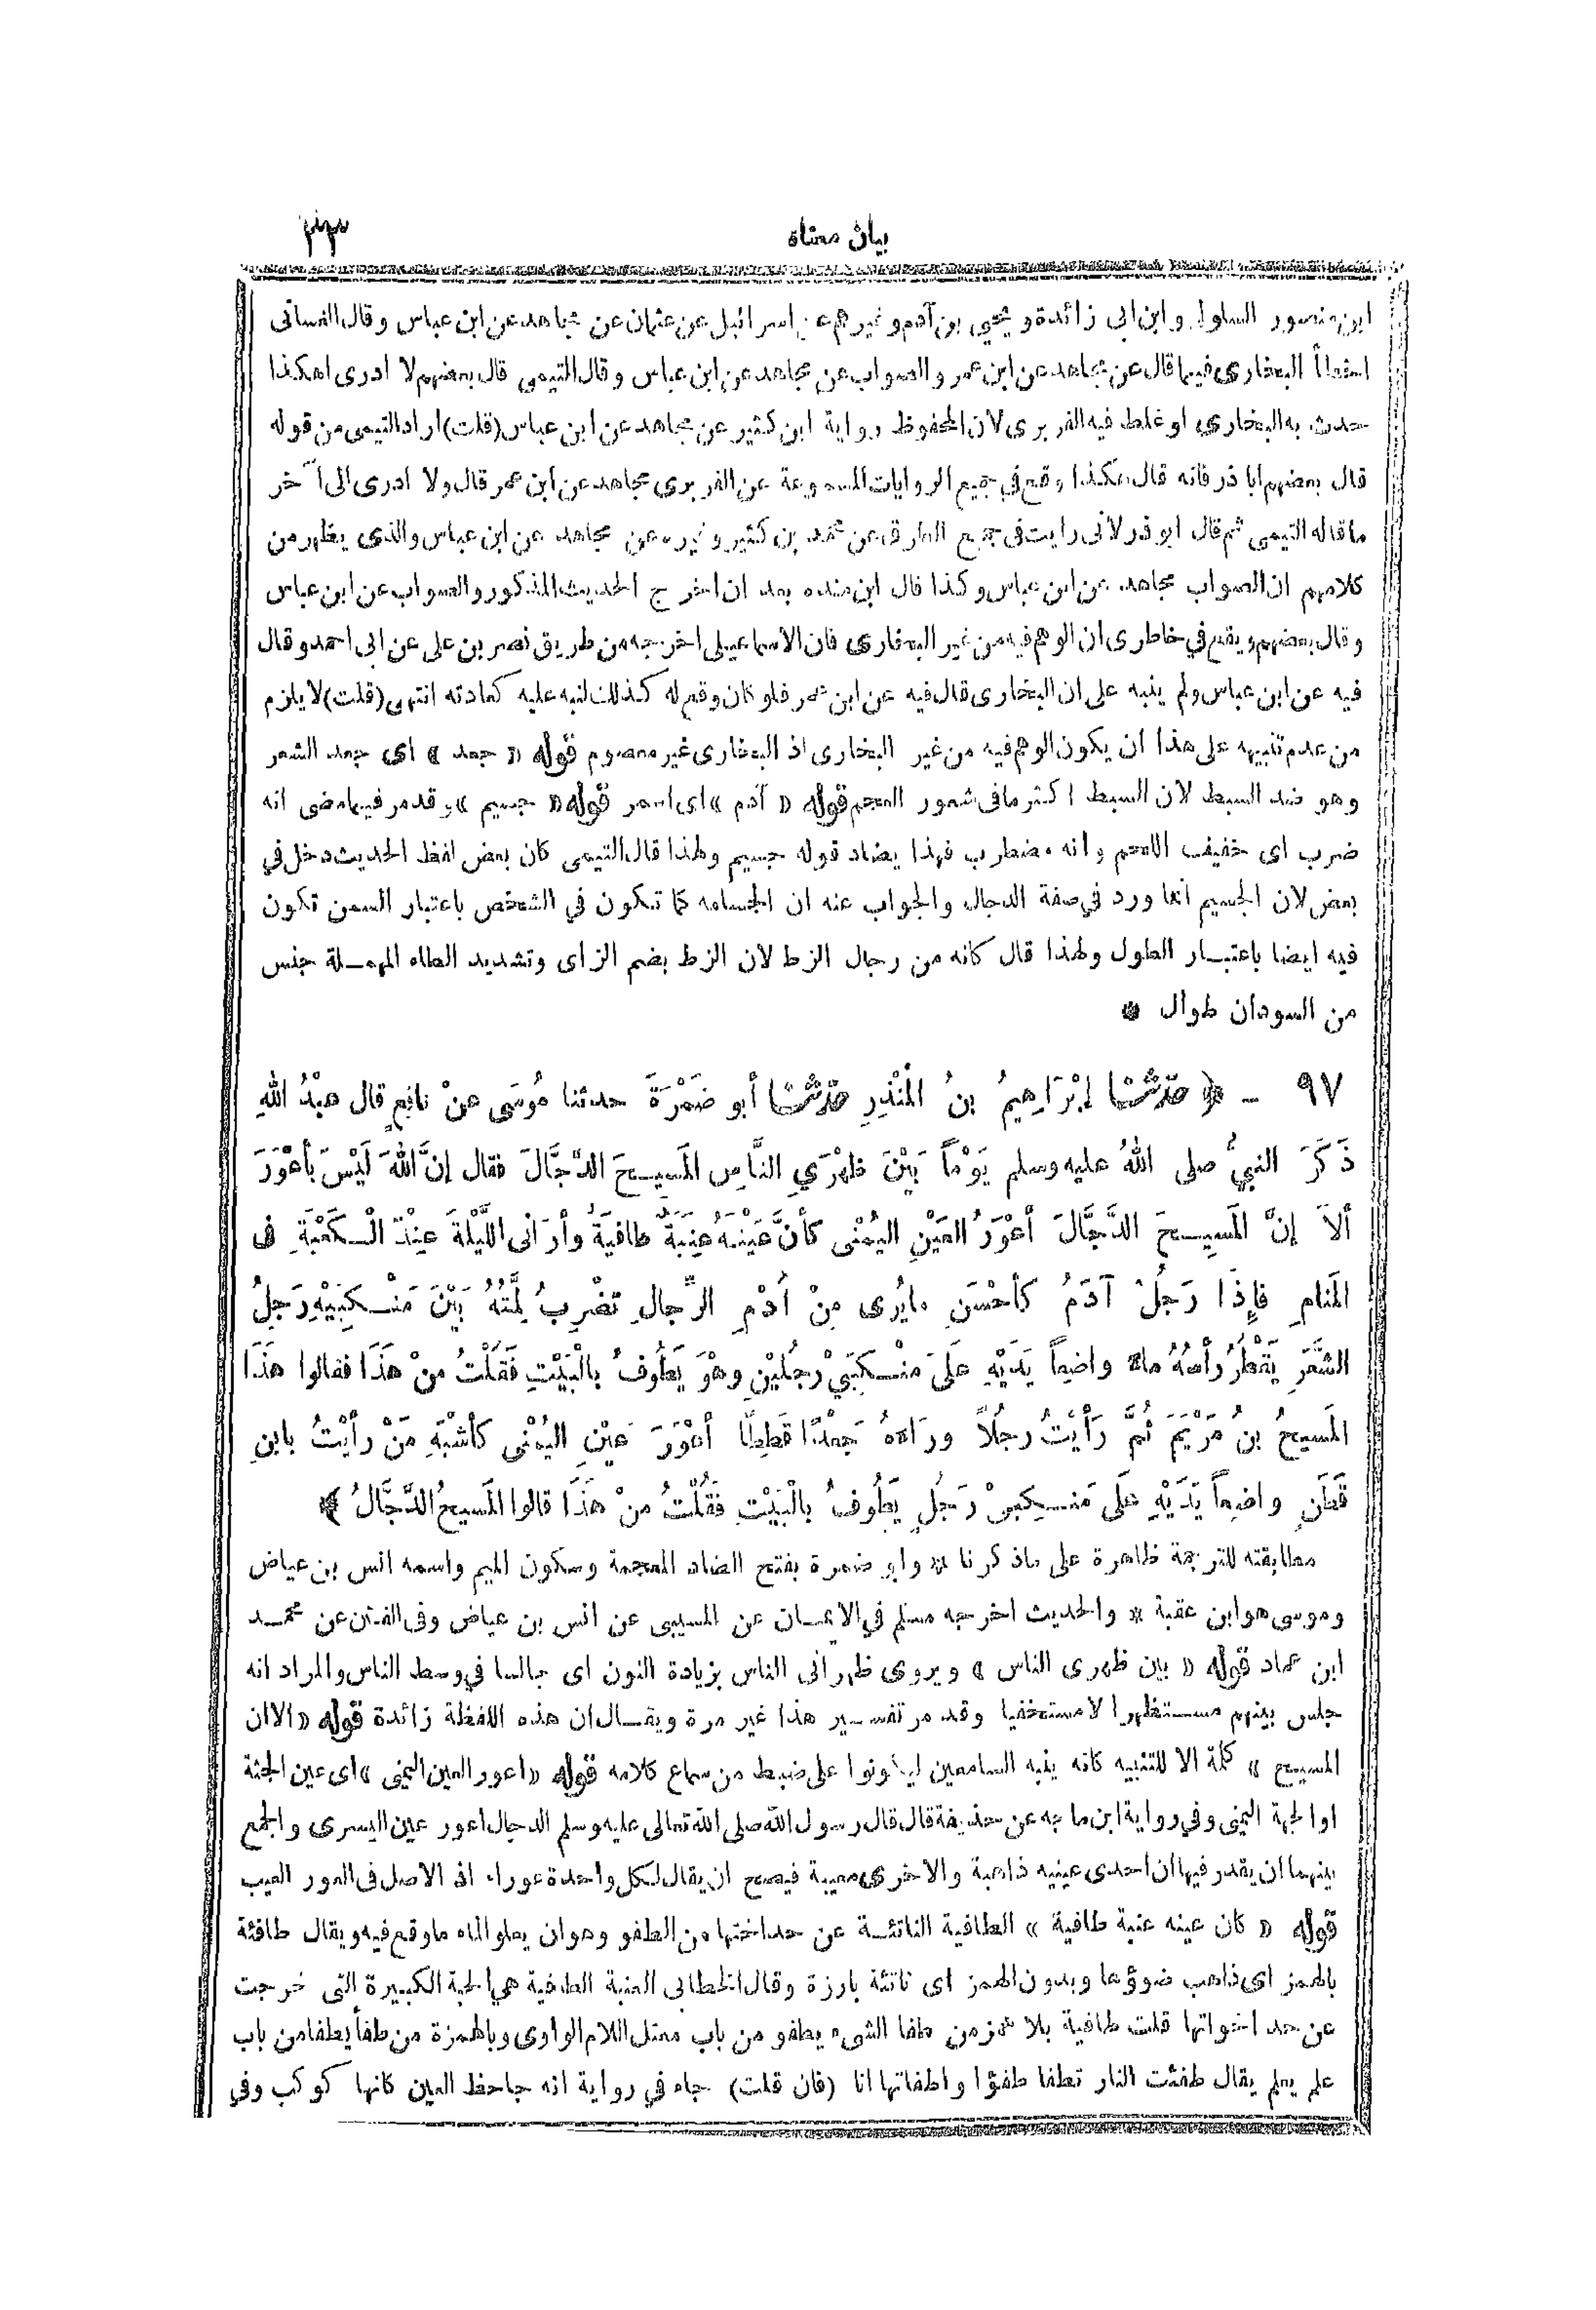 بيان معناه ٣٣
ابن منصور السلولى وابن ابى زائدة ويحيى بن آدم وغيرهم عن اسرائيل عن عثمان عن مجاهد عن ابن عباس وقال الغسانى
اخطأ البخارى فيما قال عن مجاهد عن ابن عمر والصواب عن مجاهد عن ابن عباس وقال التيمى قال بعضهم لا ادرى اهكذا
حدث به البخارى او غلط فيه الفربرى لان المحفوظ رواية ابن كثير عن مجاهد عن ابن عباس (قلت) اراد التيمى من قوله
قال بعضهم ابا ذر فانه قال هكذا وقع في جميع الروايات المسموعة عن الفربرى مجاهد عن ابن عمر قال ولا ادرى الى آخر
ما قاله التيمى ثم قال ابو ذر لانى رايت في جميع الطرق عن محمد بن كثير وغيره عن مجاهد عن ابن عباس والذى يظهر من
كلامهم ان الصواب مجاهد عن ابن عباس وكذا قال ابن منده بعد ان اخرج الحديث المذكور والصواب عن ابن عباس
وقال بعضهم ويقع في خاطرى ان الوهم فيه من غير البخارى فان الاسماعيلى اخرجه من طريق نصر بن على عن ابى احمد وقال
فيه عن ابن عباس ولم ينبه على ان البخارى قال فيه عن ابن عمر فلو كان وقع له كذلك لنبه عليه كعادته انتهى (قلت) لا يلزم
من عدم تنبيهه على هذا ان يكون الوهم فيه من غير البخارى اذ البخارى غير معصوم قوله « جعد » اى جعد الشعر
وهو ضد السبط لان السبط اكثر ما فى شعور العجم قوله « آدم » اى اسمر قوله « جسيم » وقد مر فيما مضى انه
ضرب اى خفيف اللحم وانه مضطرب فهذا يضاد قوله جسيم ولهذا قال التيمى كان بعض لفظ الحديث دخل في
بعض لان الجسيم انما ورد في صفة الدجال والجواب عنه ان الجسامه كما تكون في الشخص باعتبار السمن تكون
فيه ايضا باعتبار الطول ولهذا قال كانه من رجال الزط لان الزط بضم الزاى وتشديد الطاء المهملة جنس
من السودان طوال *
٩٧ - ﴿ حَدَّثَنَا إبْرَاهِيمُ بنُ الْمُنْذِرِ حَدَّثَنَا أبو ضَمْرَةَ حدثنا مُوسَى عنْ نافِعٍ قال عبْدُ اللهِ
ذَكَرَ النبيُّ صلى اللهُ عليه وسلم يَوْماً بَيْنَ ظَهْرَيِ النَّاسِ المَسِيحَ الدَّجَّالَ فقال إنَّ اللهَ لَيْسَ بأعْوَرَ
ألاَ إنَّ المَسِيحَ الدَّجَّالَ أعْوَرُ العَيْنِ اليُمْنَى كأنَّ عَيْنَهُ عِنَبَةٌ طافِيَةٌ وأرَانى اللَّيْلَةَ عِنْدَ الْكَعْبَةِ فى
المَنامِ فإذَا رَجُلٌ آدَمُ كأحْسَنِ مايُرى مِنْ أُدْمِ الرِّجالِ تَضْرِبُ لِمَّتُهُ بَيْنَ مَنْكِبَيْهِ رَجِلُ
الشَّعَرِ يَقْطُرُ رأْسُهُ ماءً واضِعاً يَدَيْهِ عَلَى مَنْكِبَيْ رجُلَيْنِ وهْوَ يَطُوفُ بالْبَيْتِ فَقُلْتُ منْ هَذَا فقالوا هَذَا
المَسيحُ بنُ مَرْيَمَ ثُمَّ رَأيْتُ رجُلاً ورَاءهُ جَعْدًا قَطِطًا أعْوَرَ عَيْنِ اليُمْنَى كأشْبَهِ مَنْ رأيْتُ بابنِ
قَطَنٍ واضِعاً يَدَيْهِ عَلَى مَنْكِبَيْ رَجُلٍ يَطُوفُ بالْبَيْتِ فَقُلْتُ منْ هَذَا قالوا المَسيحُ الدَّجَّالُ ﴾
مطابقته للترجمة ظاهرة على ماذكرنا * وابو ضمرة بفتح الضاد المعجمة وسكون الميم واسمه انس بن عياض
وموسى هو ابن عقبة * والحديث اخرجه مسلم في الايمان عن المسيبى عن انس بن عياض وفى الفتن عن محمد
ابن عباد قوله « بين ظهرى الناس » ويروى ظهرانى الناس بزيادة النون اى جالسا في وسط الناس والمراد انه
جلس بينهم مستظهرا لا مستخفيا وقد مر تفسير هذا غير مرة ويقال ان هذه اللفظة زائدة قوله « الا ان
المسيح » كلمة الا للتنبيه كانه ينبه السامعين ليكونوا على ضبط من سماع كلامه قوله « اعور العين اليمنى » اى عين الجثة
او الجهة اليمنى وفي رواية ابن ماجه عن حذيفة قال قال رسول الله صلى الله تعالى عليه وسلم الدجال اعور عين اليسرى والجمع
بينهما ان يقدر فيها ان احدى عينيه ذاهبة والاخرى معيبة فيصح ان يقال لكل واحدة عوراء اذ الاصل فى العور العيب
قوله « كان عينه عنبة طافية » الطافية الناتئة عن حد اختها من الطفو وهو ان يعلو الماء ما وقع فيه ويقال طافئة
بالهمز اى ذاهب ضوؤها وبدون الهمز اى ناتئة بارزة وقال الخطابى العنبة الطافية هي الحبة الكبيرة التى خرجت
عن حد اخواتها قلت طافية بلا همز من طفا الشىء يطفو من باب معتل اللام الواوى وبالهمزة من طفأ يطفا من باب
علم يعلم يقال طفئت النار تطفا طفؤا واطفاتها انا (فان قلت) جاء في رواية انه جاحظ العين كانها كوكب وفي